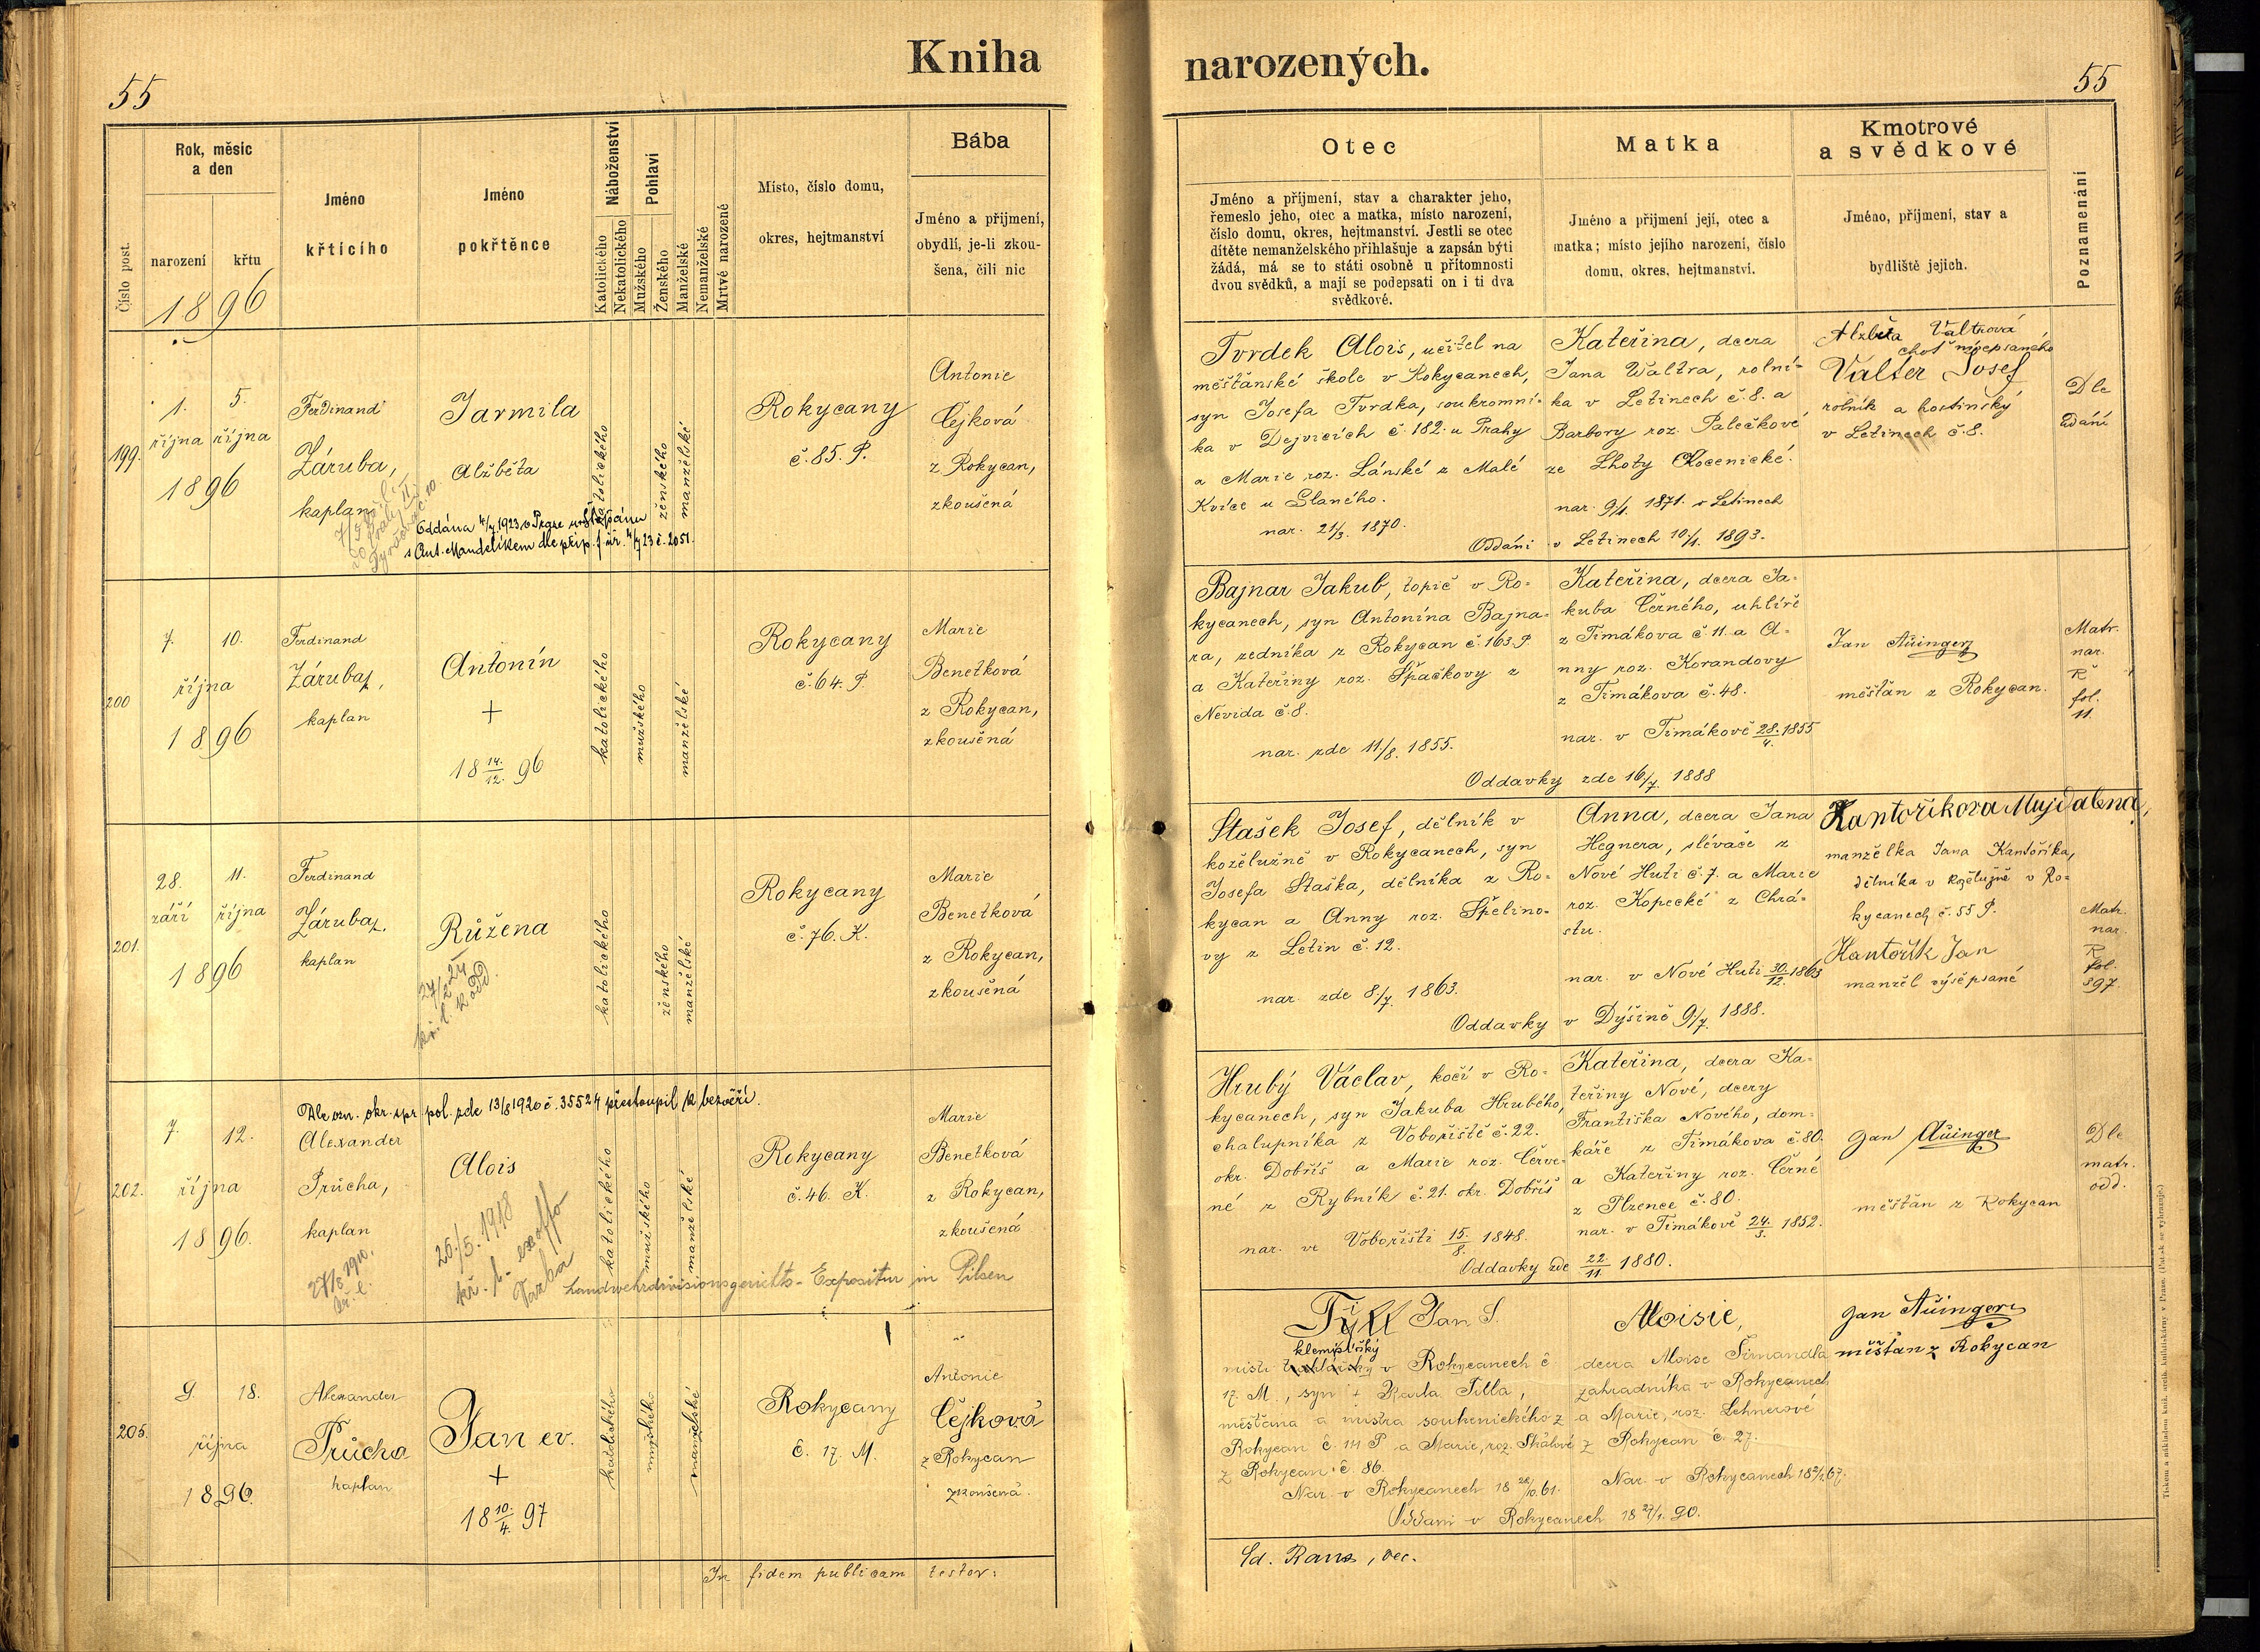 Kniha narozených.
55
55
Číslo post.
Rok, měsíc
a den
narození
křtu
1896
Jméno
křticího
Jméno
pokřtěnce
Náboženství
Katolického
Nekatolického
Pohlaví
Mužského
Ženského
Manželské
Nemanželské
Mrtvé narozené
Místo, číslo domu,
okres, hejtmanství
Bába
Jméno a příjmení,
obydlí, je-li zkou-
šena, čili nic
Otec
Jméno a příjmení, stav a charakter jeho,
řemeslo jeho, otec a matka, místo narození,
číslo domu, okres, hejtmanství. Jestli se otec
dítěte nemanželského přihlašuje a zapsán býti
žádá, má se to státi osobně u přítomnosti
dvou svědků, a mají se podepsati on i ti dva
svědkové.
Matka
Jméno a příjmení její, otec a
matka; místo jejího narození, číslo
domu, okres, hejtmanství.
Kmotrové
a svědkové
Jméno, příjmení, stav a
bydliště jejich.
Poznamenání
199.
1. 5.
října října
1896
Ferdinand
Záruba,
kaplan
Jarmila
Alžběta
Oddána 4/7 1923 v Praze u sv. Štěpána
s Ant. Mandelíkem dle příp. f. úř. 4/7 23 č. 2051.
katolického
ženského
manželské
Rokycany
č. 85. P.
Antonie
Čejková
z Rokycan,
zkoušená
Tvrdek Alois, učitel na
měšťanské škole v Rokycanech,
syn Josefa Tvrdka, soukromní-
ka v Dejvicích č. 182. u Prahy
a Marie roz. Lánské z Malé
Kvíce u Slaného.
nar. 21/3. 1870.
Kateřina, dcera
Jana Waltra, rolní-
ka v Letinech č. 8. a
Barbory roz. Palečkové
ze Lhoty Kocenické.
nar. 9/1. 1871. v Letinech
Oddáni v Letinech 10/1. 1893.
Alžběta Valtrová
choť níže psaného
Valter Josef
rolník a hostinský
v Letinech č. 8.
Dle
udání
200
7. 10.
října
1896
Ferdinand
Záruba,
kaplan
Antonín
+
18 14./12. 96
katolického
mužského
manželské
Rokycany
č. 64. P.
Marie
Benetková
z Rokycan,
zkoušená
Bajnar Jakub, topič v Ro-
kycanech, syn Antonína Bajna-
ra, zedníka z Rokycan č. 163. P.
a Kateřiny roz. Špačkovy z
Nevida č. 8.
nar. zde 11/8. 1855.
Kateřina, dcera Ja-
kuba Černého, uhlíře
z Timákova č. 11. a A-
nny roz. Korandovy
z Timákova č. 48.
nar. v Timákově 28./4. 1855
Oddavky zde 16/7. 1888
Jan Auinger
měšťan z Rokycan.
Matr.
nar.
R
fol.
11.
201.
28. 11.
září října
1896
Ferdinand
Záruba,
kaplan
Růžena
katolického
ženského
manželské
Rokycany
č. 76. K.
Marie
Benetková
z Rokycan,
zkoušená
Stašek Josef, dělník v
koželužně v Rokycanech, syn
Josefa Staška, dělníka z Ro-
kycan a Anny roz. Špelino-
vy z Letin č. 12.
nar. zde 8./7. 1863.
Anna, dcera Jana
Hegnera, slévače z
Nové Huti č. 7. a Marie
roz. Kopecké z Chrá-
stu.
nar. v Nové Huti 30./12. 1863
Oddavky v Dýšině 9/7. 1888.
Kantoříkova Majdalena,
manželka Jana Kantoříka,
dělníka v koželužně v Ro-
kycanech č. 55 P.
Kantořík Jan
manžel výše psané
Matr.
nar.
R
fol.
397.
202.
7. 12.
října
1896.
Dle ozn. okr. spr. pol. zde 13/8 1920 č. 35524 přestoupil k bezvěří.
Alexander
Průcha,
kaplan
27/8 1910.
kř. l.
Alois
25./5. 1918
kř. l. - ex offo
Vazba
Landwehrdivisionsgerichts-Expositur in Pilsen
katolického
mužského
manželské
Rokycany
č. 46. K.
Marie
Benetková
z Rokycan,
zkoušená
Hrubý Václav, kočí v Ro-
kycanech, syn Jakuba Hrubého,
chalupníka z Vobořiště č. 22.
okr. Dobříš a Marie roz. Červe-
né z Rybník č. 21. okr. Dobříš
nar. ve Vobořišti 15./8. 1848.
Kateřina, dcera Ka-
teřiny Nové, dcery
Františka Nového, dom-
káře z Timákova č. 80.
a Kateřiny roz. Černé
z Plzence č. 80.
nar. v Timákově 24./3. 1852.
Oddavky zde 22./11. 1880.
Jan Auinger
měšťan z Rokycan
Dle
matr.
odd.
203.
9. 18.
října
1896.
Alexander
Průcha
kaplan
Jan ev.
+
18 10./4. 97
katolického
mužského
manželské
Rokycany
č. 17. M.
Antonie
Čejková
z Rokycan
zkoušená.
Tyll Jan S.
klempířský
mistr v Rokycanech č
17. M., syn + Karla Tilla,
měšťana a mistra soukenického z
Rokycan č. 141 P a Marie, roz. Skálové
z Rokycan č. 86.
Nar. v Rokycanech 18 28/10. 61.
Aloisie,
dcera Aloise Šimandla
zahradníka v Rokycanech
a Marie, roz. Lehnerové
z Rokycan č. 27.
Nar. v Rokycanech 18 2/1. 67.
Oddáni v Rokycanech 18 27/1. 90.
Jan Auinger
měšťan z Rokycan
In fidem publicam testor:
Ed. Rans, dec.